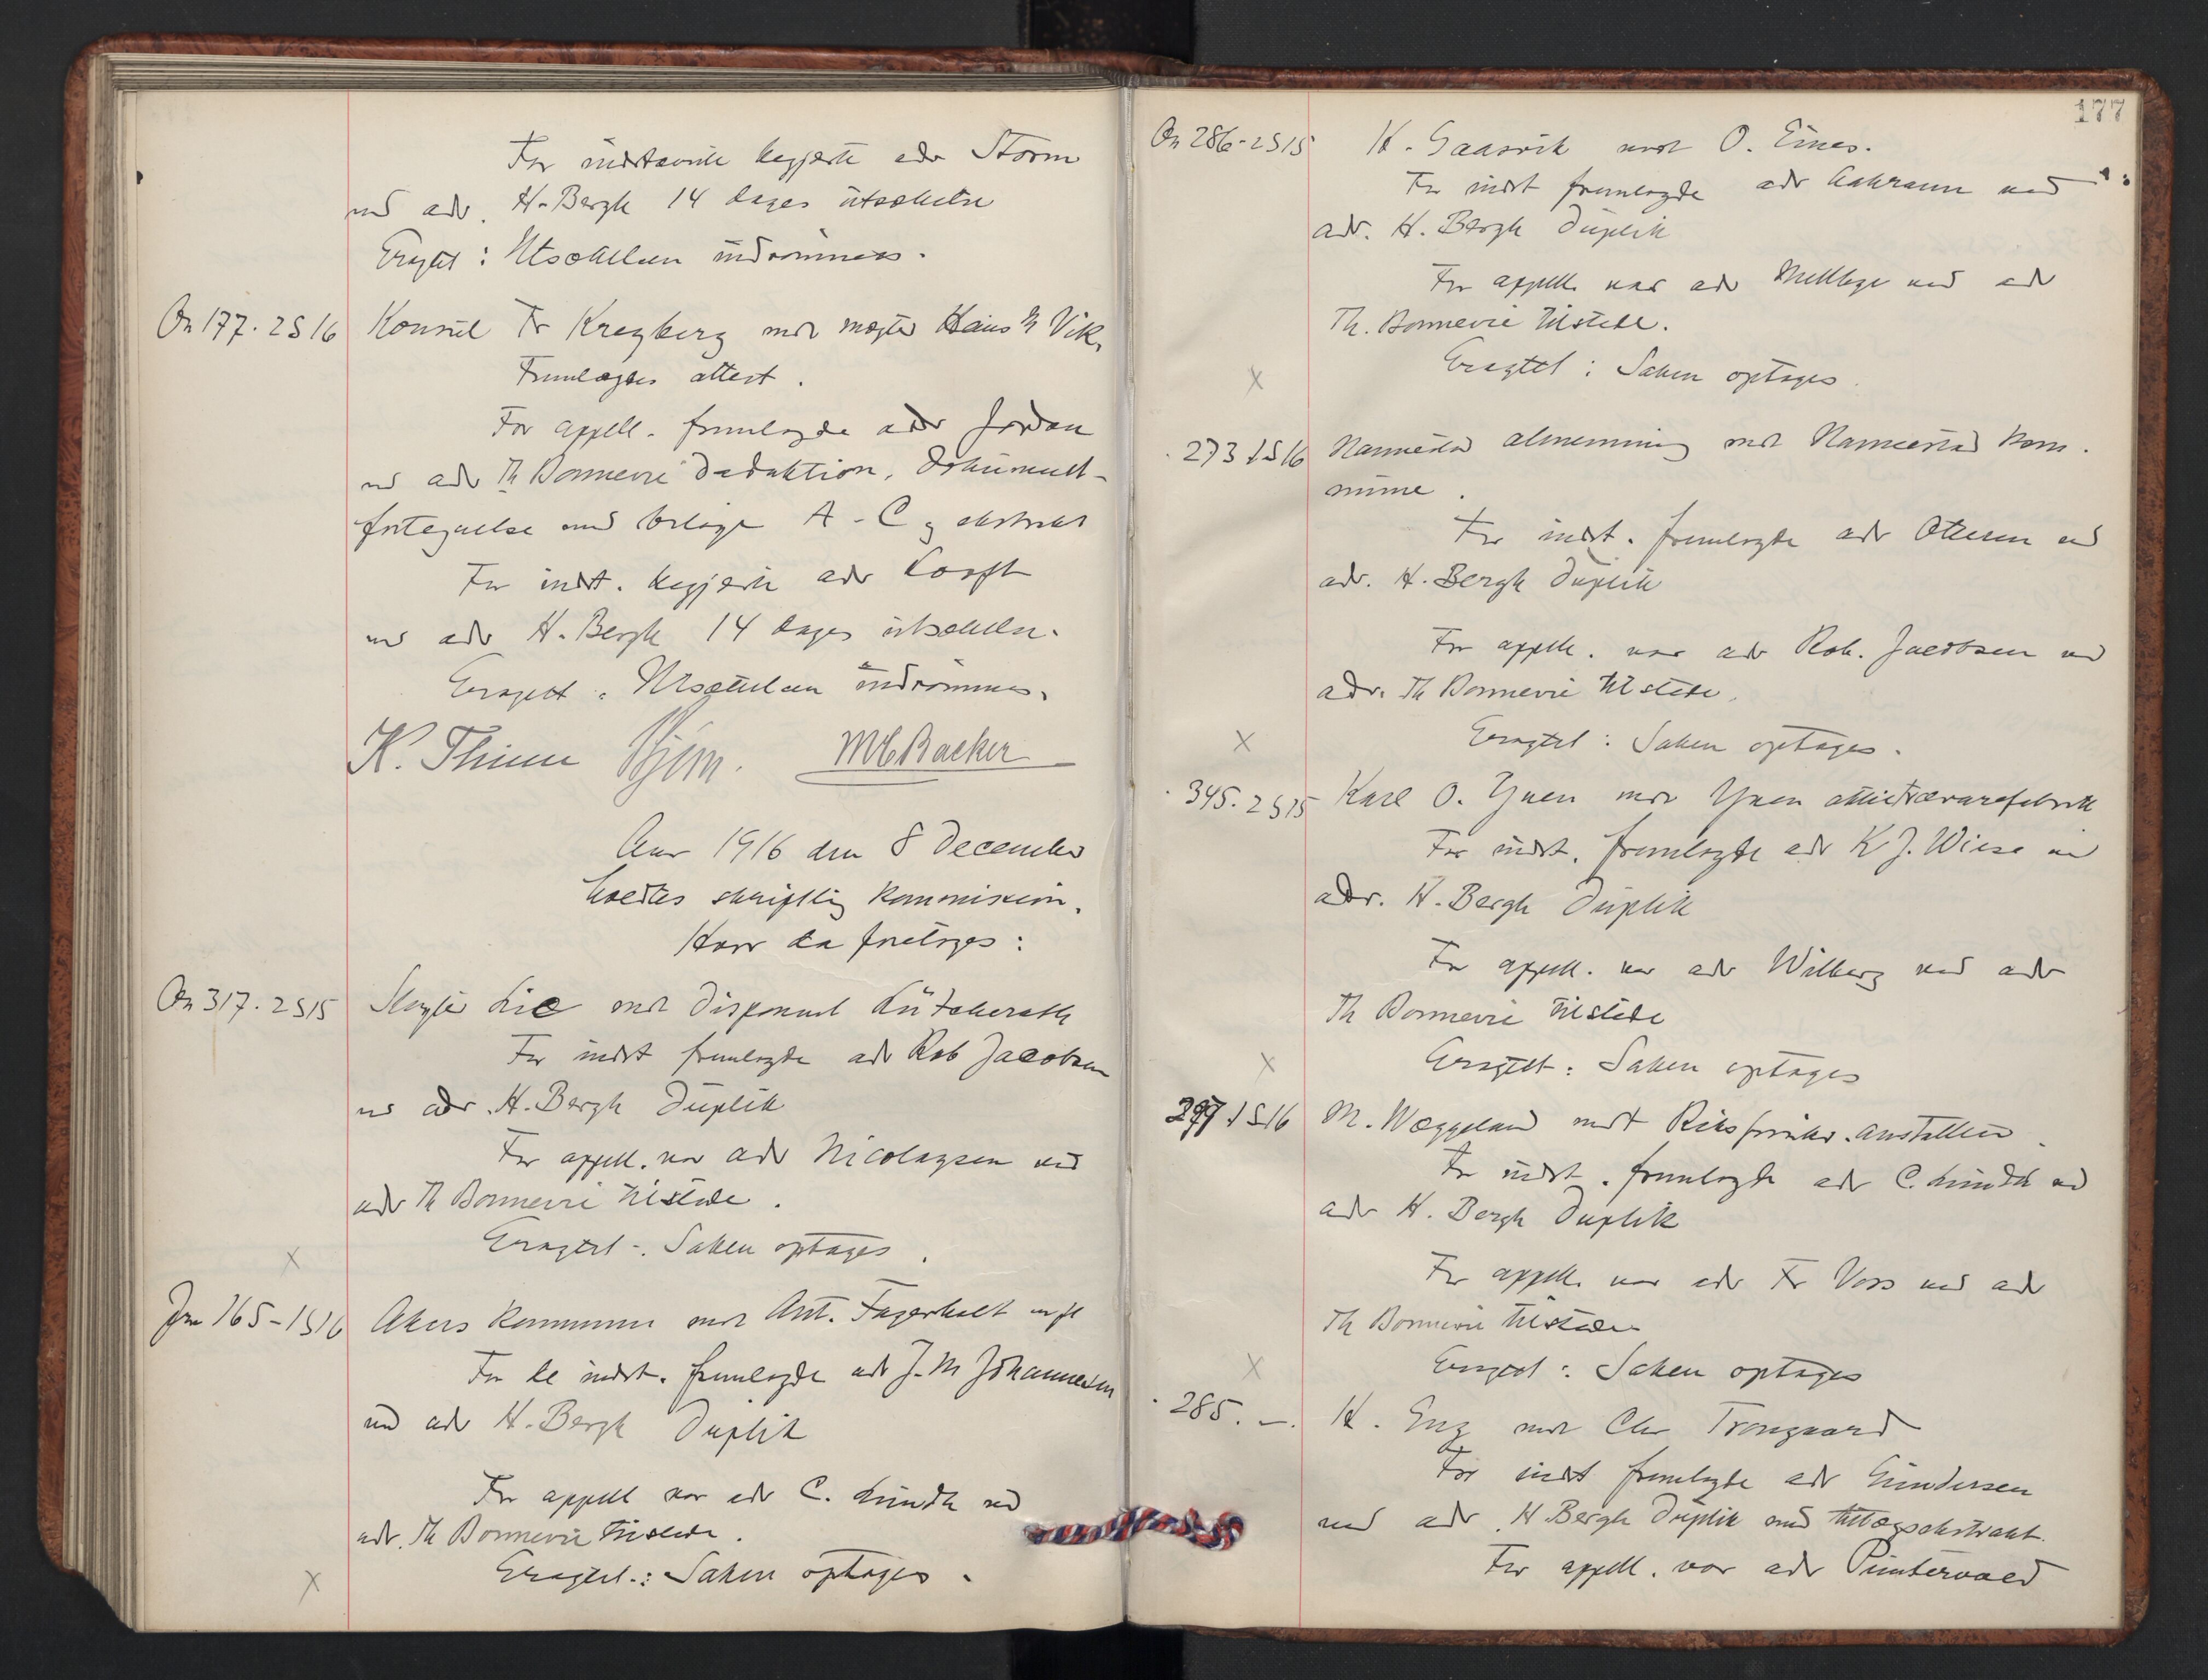 For indstevnte begjærte adv Storm
ved adv. H. Bergh 14 dages utsættelse
Eragtet : Utsættelsen indrømmes.
On 177. 2S16 Konsul Fr Kregberg mot megler Hans Vik.
Fremlagdes attest.
For appell. fremlagde adv Jordan
ved adv Th Bonnevie deduktion, dokument-
fortegnelse med bilage A - C og ekstrakt
For indst. begjærte adv Looft
ved adv H. Bergh 14 dages utsættelse.
Eragtet : Utsættelsen indrømmes.
K. Thinn MCBacker
Aar 1916 den 8 December
holdtes skriftlig kommission.
Hvor da foretoges :
On 317. 2S15 Megler Lie mot disponent Lützherath
For indst fremlagde adv Rob Jacobsen
ved adv. H. Bergh Duplik
For appell. var adv Nicolaysen ved
adv Th Bonnevie tilstede.
Eragtet : Saken optages.
x
Fre 165-1S16 Akers kommune mot Ant. Fagerholt m fl
For de indst. fremlagde adv J. M Johannesen
ved adv H. Bergh Duplik
For appell var adv C. Lundh ved
adv. Th Bonnevie tilstede.
Eragtet : Saken optages.
x
177
On 286-2S15 K. Gaasvik mot O. Eines.
For indst fremlagde adv ved
adv. H. Bergh Duplik
For appell. var adv Mellbye ved adv
Th. Bonnevie tilstede.
Eragtet : Saken optages.
x
273 1S16 Nannestad almenning mot Nannestad kom-
mune.
For indst. fremlagde adv Ottesen ved
adv. H. Bergh Duplik
For appell. var adv Rob. Jacobsen ved
adv. Th Bonnevie tilstede.
Eragtet : Saken optages.
x
345. 2S15 Karl O. Yuen mot Yuen
For indst. fremlagde adv K J. Wiese ved
adv. H. Bergh Duplik
For appell. var adv Wilberg ved adv
Th Bonnevie tilstede
Eragtet : Saken optages
x
297 1S16 M. Wæggeland mot Riksforsikr. anstalten.
For indst. fremlagde adv C. Lundh ved
adv H. Bergh Duplik
For appell. var adv Fr Voss ved adv
Th Bonnevie tilstede
Eragtet : Saken optages
x
285. -. H. Eng mot Chr Trongaard
For indst fremlagde adv Gundersen
ved adv H. Bergh Duplik med tillægsekstrakt.
For appell. var adv Puntervold